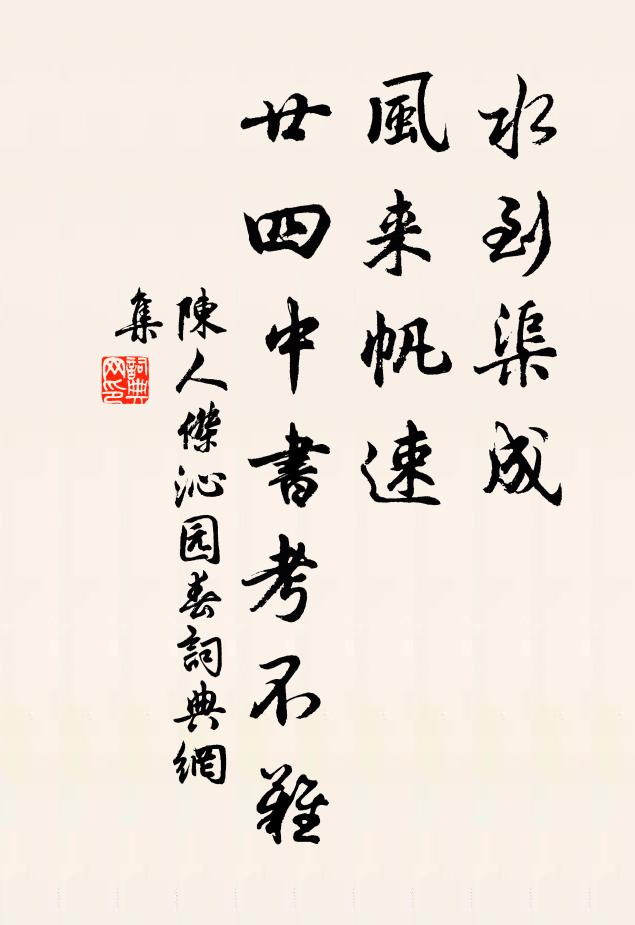 水到渠成
風来帆速
廿四中書考不難
陳人傑沁园春詞典網
集
詞典
网印